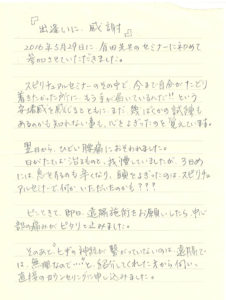 『出逢いに、感謝』
2016年5月29日に、有田先生のセミナーに初めて
参加させていただきました。
スピリチュアルセミナーのその中で、今まで自分がたどり
着きたかった所に、もう着いているんだ!!という
安堵感を感じるとともに、まだ幾ばくかの試練も
あるのかも知れない事も、心をよぎったのを覚えています。
翌日から、ひどい腰痛におそわれました。
日がたてば治るものと、我慢していましたが、3日めに
は、息をするのも辛くなり、頭をよぎったのは、スピリチュ
アルセミナーで何かいただいたのかも???
ピンときて、即日、遠隔施術をお願いしたら、中心
部の痛みがピタリと止みました。
そのあと、ヒザの神経が繋がっていないのは、遠隔で
は、無理なので…と、紹介してくれた方から伺い、
直接のカウンセリングに申し込みました。